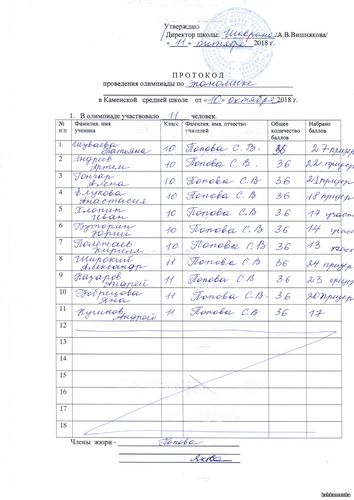 Утверждаю
Директор школы: /А.В.Вишнякова/
« 11 » октября 2018 г.
ПРОТОКОЛ
проведения олимпиады по экономике
в Каменской средней школе от «10» октября 2018 г.
1. В олимпиаде участвовало 11 человек.
№ п/п Фамилия, имя ученика Класс Фамилия, имя, отчество учителей Общее количество баллов Набрано баллов
1. Шуваева Татьяна 10 Попова С.В. 36 27 призер
2 Артем 10 Попова С.В. 36 22 призер
3 Гончар Алена 10 Попова С.В. 36 21 призер
4 Анастасия 10 Попова С.В. 36 18 призер
5 Хлопин Иван 10 Попова С.В. 36 17 участ
6 Юрий 10 Попова С.В. 36 14 участ
7 Кирилл 10 Попова С.В. 36 13 участ
8 Широкий Александр 11 Попова С.В 36 24 призер
9 Назаров Андрей 11 Попова С.В. 36 23 призер
10 Яна 11 Попова С.В. 36 20 призер
11 Куликов Андрей 11 Попова С.В. 36 17
12
13
14
15
16
17
18
Члены жюри - Попова